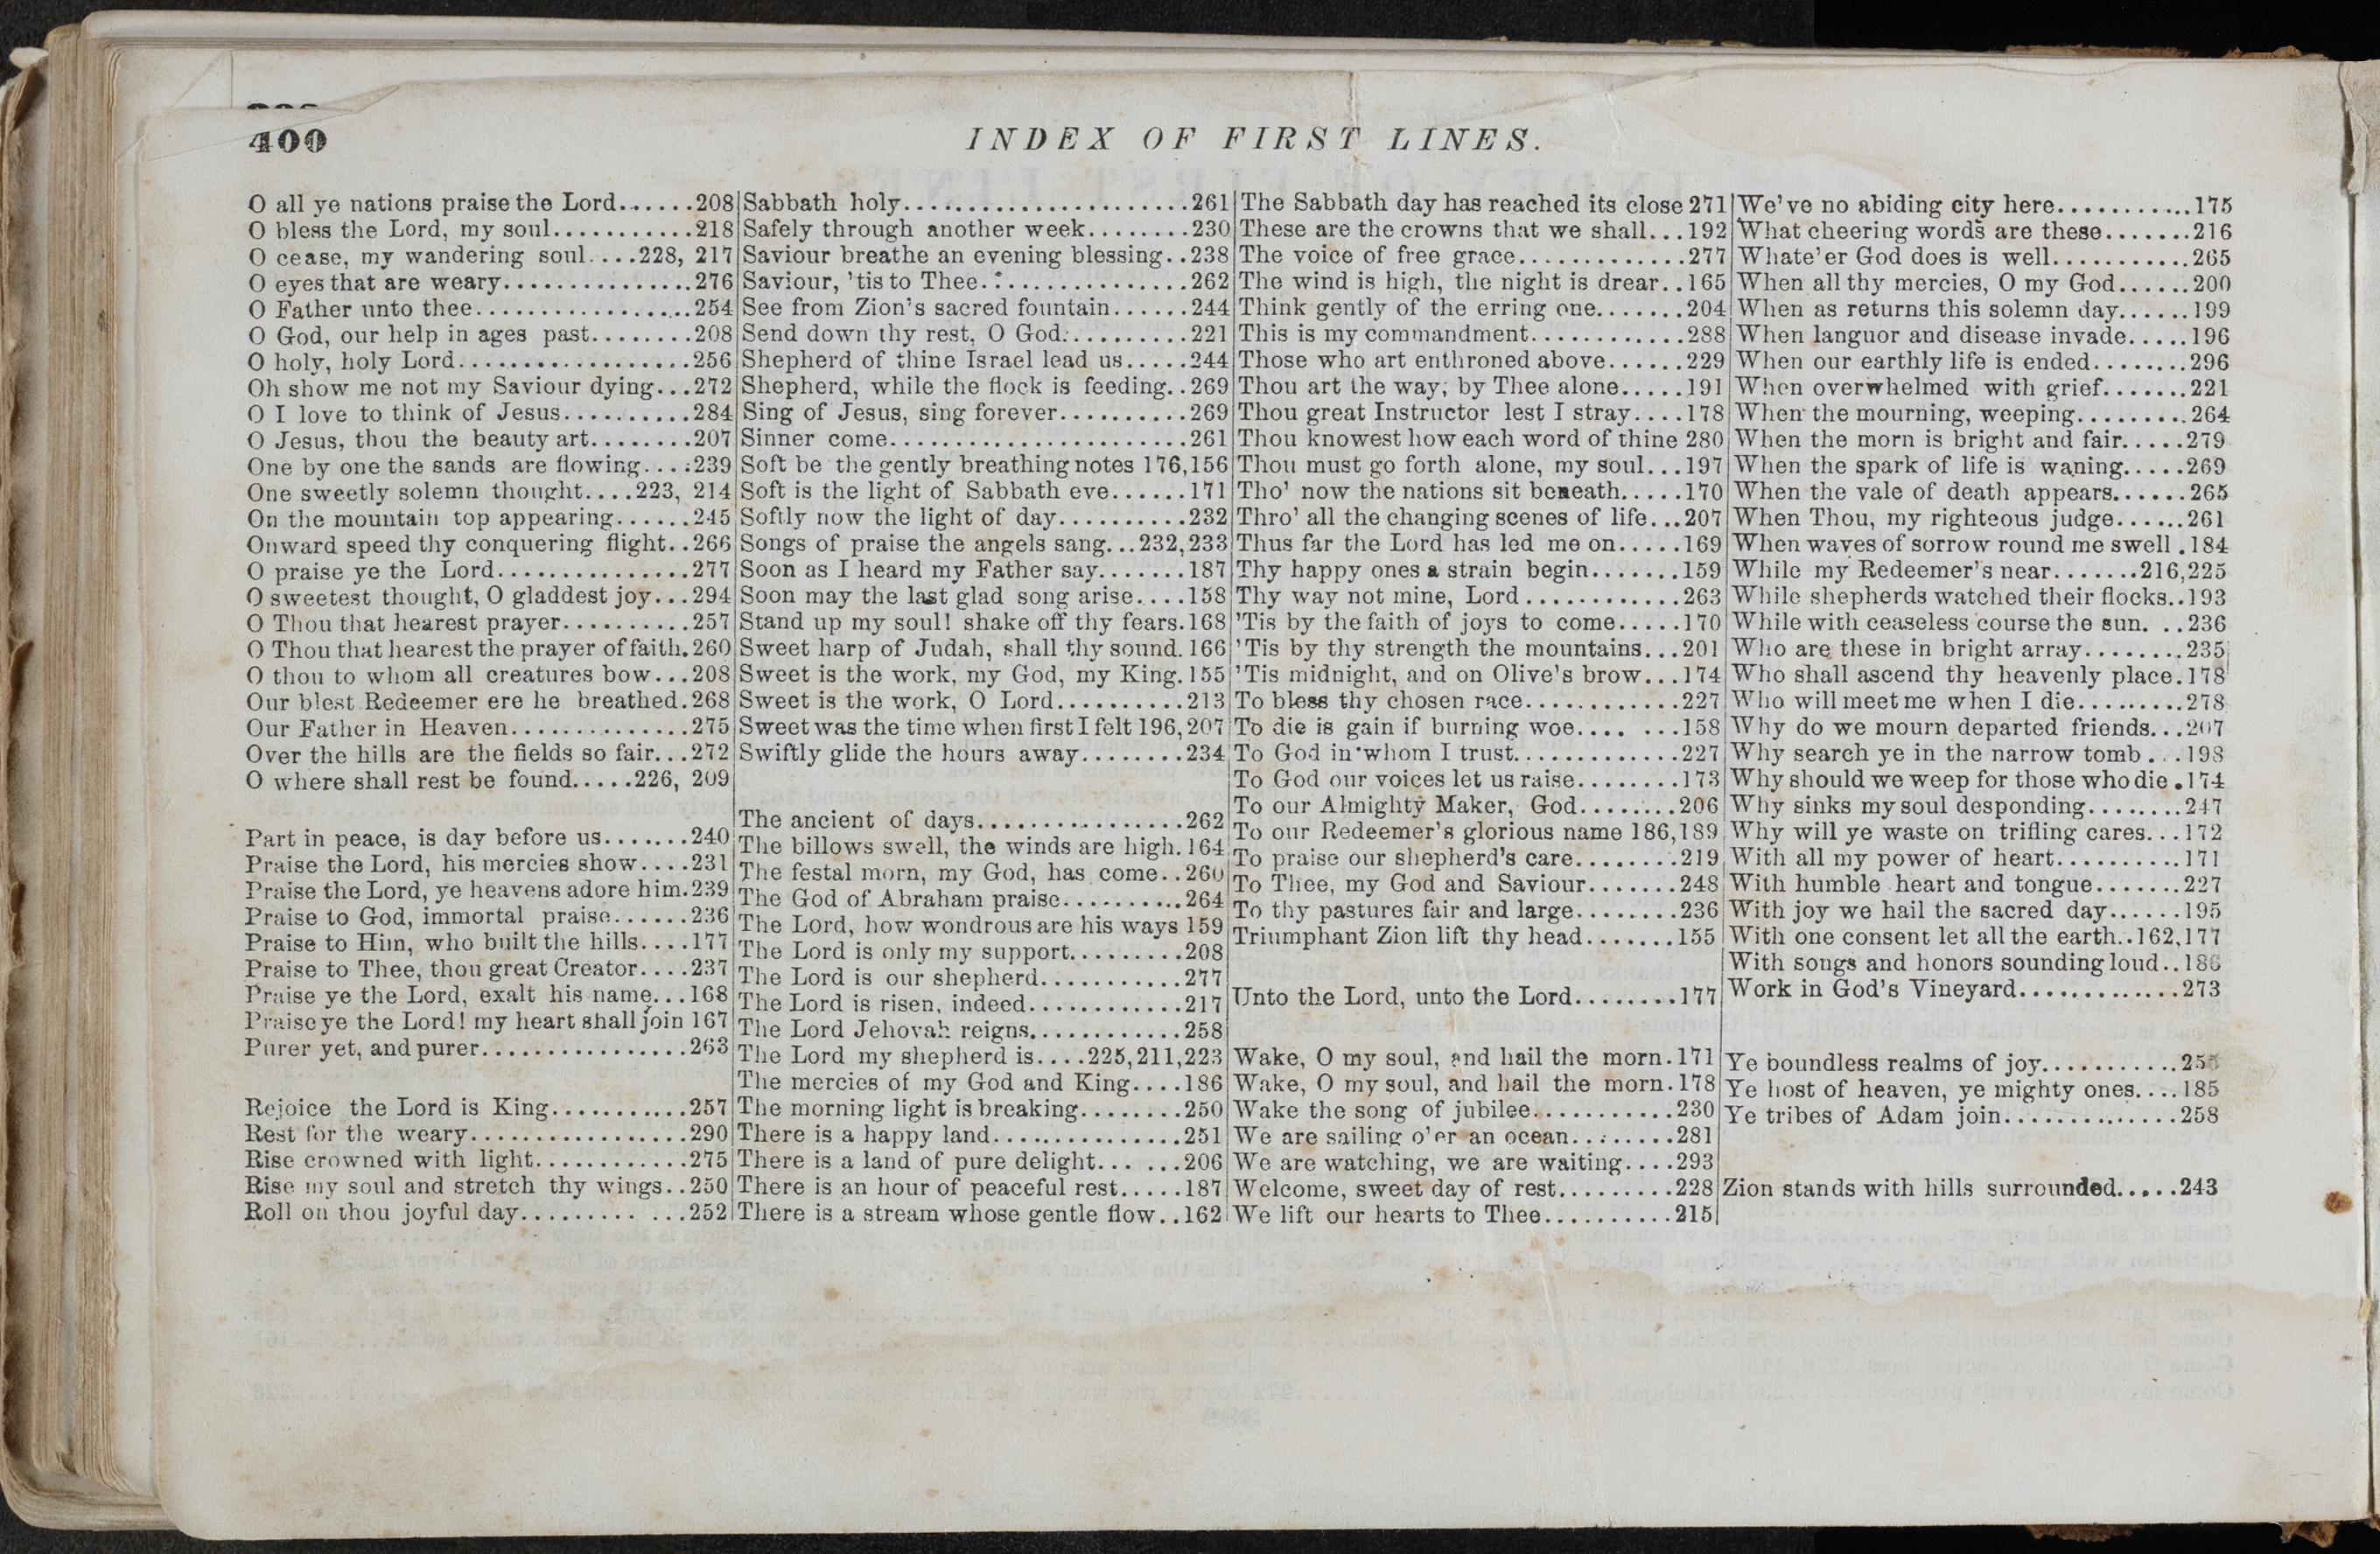 400
INDEX OF FIRST LINES.
O all ye nations praise the Lord......208
O bless the Lord, my soul...........218
O cease, my wandering soul....228, 217
O eyes that are weary...............276
O Father unto thee.................254
O God, our help in ages past........208
O holy, holy Lord..................256
Oh show me not my Saviour dying...272
O I love to think of Jesus..........284
O Jesus, thou the beauty art........207
One by one the sands are flowing....239
One sweetly solemn thought....223, 214
On the mountain top appearing......245
Onward speed thy conquering flight..266
O praise ye the Lord...............277
O sweetest thought, O gladdest joy...294
O Thou that hearest prayer..........257
O Thou that hearest the prayer of faith.260
O thou to whom all creatures bow...208
Our blest Redeemer ere he breathed.268
Our Father in Heaven..............275
Over the hills are the fields so fair...272
O where shall rest be found.....226, 209
Part in peace, is day before us.......240
Praise the Lord, his mercies show....231
Praise the Lord, ye heavens adore him.239
Praise to God, immortal praise......236
Praise to Him, who built the hills....177
Praise to Thee, thou great Creator....237
Praise ye the Lord, exalt his name...168
Praise ye the Lord! my heart shall join 167
Purer yet, and purer................263
Rejoice the Lord is King...........257
Rest for the weary.................290
Rise crowned with light............275
Rise my soul and stretch thy wings..250
Roll on thou joyful day......... ...252
Sabbath holy......................261
Safely through another week........230
Saviour breathe an evening blessing..238
Saviour, 'tis to Thee................262
See from Zion's sacred fountain......244
Send down thy rest, O God..........221
Shepherd of thine Israel lead us.....244
Shepherd, while the flock is feeding..269
Sing of Jesus, sing forever..........269
Sinner come.......................261
Soft be the gently breathing notes 176,156
Soft is the light of Sabbath eve......171
Softly now the light of day..........232
Songs of praise the angels sang...232,233
Soon as I heard my Father say.......187
Soon may the last glad song arise....158
Stand up my soul! shake off thy fears.168
Sweet harp of Judah, shall thy sound.166
Sweet is the work, my God, my King.155
Sweet is the work, O Lord..........213
Sweet was the time when first I felt 196,207
Swiftly glide the hours away........234
The ancient of days................262
The billows swell, the winds are high.164
The festal morn, my God, has come..260
The God of Abraham praise..........264
The Lord, how wondrous are his ways 159
The Lord is only my support.........208
The Lord is our shepherd...........277
The Lord is risen, indeed............217
The Lord Jehovah reigns............258
The Lord my shepherd is....225,211,223
The mercies of my God and King....186
The morning light is breaking........250
There is a happy land...............251
There is a land of pure delight... ...206
There is an hour of peaceful rest.....187
There is a stream whose gentle flow..162
The Sabbath day has reached its close 271
These are the crowns that we shall...192
The voice of free grace.............277
The wind is high, the night is drear..165
Think gently of the erring one.......204
This is my commandment............288
Those who art enthroned above......229
Thou art the way, by Thee alone.....191
Thou great Instructor lest I stray....178
Thou knowest how each word of thine 280
Thou must go forth alone, my soul...197
Tho' now the nations sit beneath.....170
Thro' all the changing scenes of life...207
Thus far the Lord has led me on.....169
Thy happy ones a strain begin.......159
Thy way not mine, Lord............263
'Tis by the faith of joys to come.....170
'Tis by thy strength the mountains...201
'Tis midnight, and on Olive's brow...174
To bless thy chosen race............227
To die is gain if burning woe.... ...158
To God in whom I trust.............227
To God our voices let us raise........173
To our Almighty Maker, God........206
To our Redeemer's glorious name 186,189
To praise our shepherd's care........219
To Thee, my God and Saviour.......248
To thy pastures fair and large........236
Triumphant Zion lift thy head.......155
Unto the Lord, unto the Lord........177
Wake, O my soul, and hail the morn.171
Wake, O my soul, and hail the morn.178
Wake the song of jubilee...........230
We are sailing o'er an ocean........281
We are watching, we are waiting....293
Welcome, sweet day of rest.........228
We lift our hearts to Thee..........215
We've no abiding city here...........175
What cheering words are these.......216
Whate'er God does is well...........265
When all thy mercies, O my God......200
When as returns this solemn day......199
When languor and disease invade.....196
When our earthly life is ended........296
When overwhelmed with grief.......221
When the mourning, weeping.........264
When the morn is bright and fair.....279
When the spark of life is waning.....269
When the vale of death appears......265
When Thou, my righteous judge......261
When waves of sorrow round me swell .184
While my Redeemer's near.......216,225
While shepherds watched their flocks..193
While with ceaseless course the sun. ..236
Who are these in bright array........235
Who shall ascend thy heavenly place.178
Who will meet me when I die.........278
Why do we mourn departed friends...207
Why search ye in the narrow tomb...198
Why should we weep for those who die .174
Why sinks my soul desponding........247
Why will ye waste on trifling cares...172
With all my power of heart..........171
With humble heart and tongue.......227
With joy we hail the sacred day......195
With one consent let all the earth..162,177
With songs and honors sounding loud..186
Work in God's Vineyard.............273
Ye boundless realms of joy...........
Ye host of heaven, ye mighty ones....185
Ye tribes of Adam join..............258
Zion stands with hills surrounded.....243